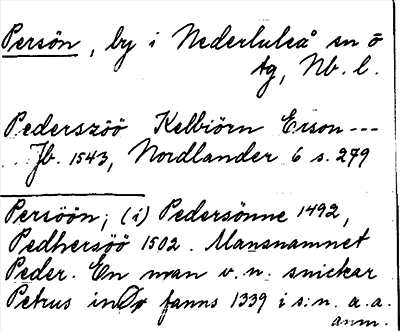 Persön, by i Nederluleå sn o
tg, Nb. l.
Pederszöö Kelbiörn Erson ---
.. Jb. 1543, Nordlander 6 s. 279
Persöön; (i) Pedersönne 1492,
Pedhersöö 1502. Mansnamnet
Peder. En man v. n. snickar
Petrus in Ög fanns 1339 i s:n. a.a.
anm.